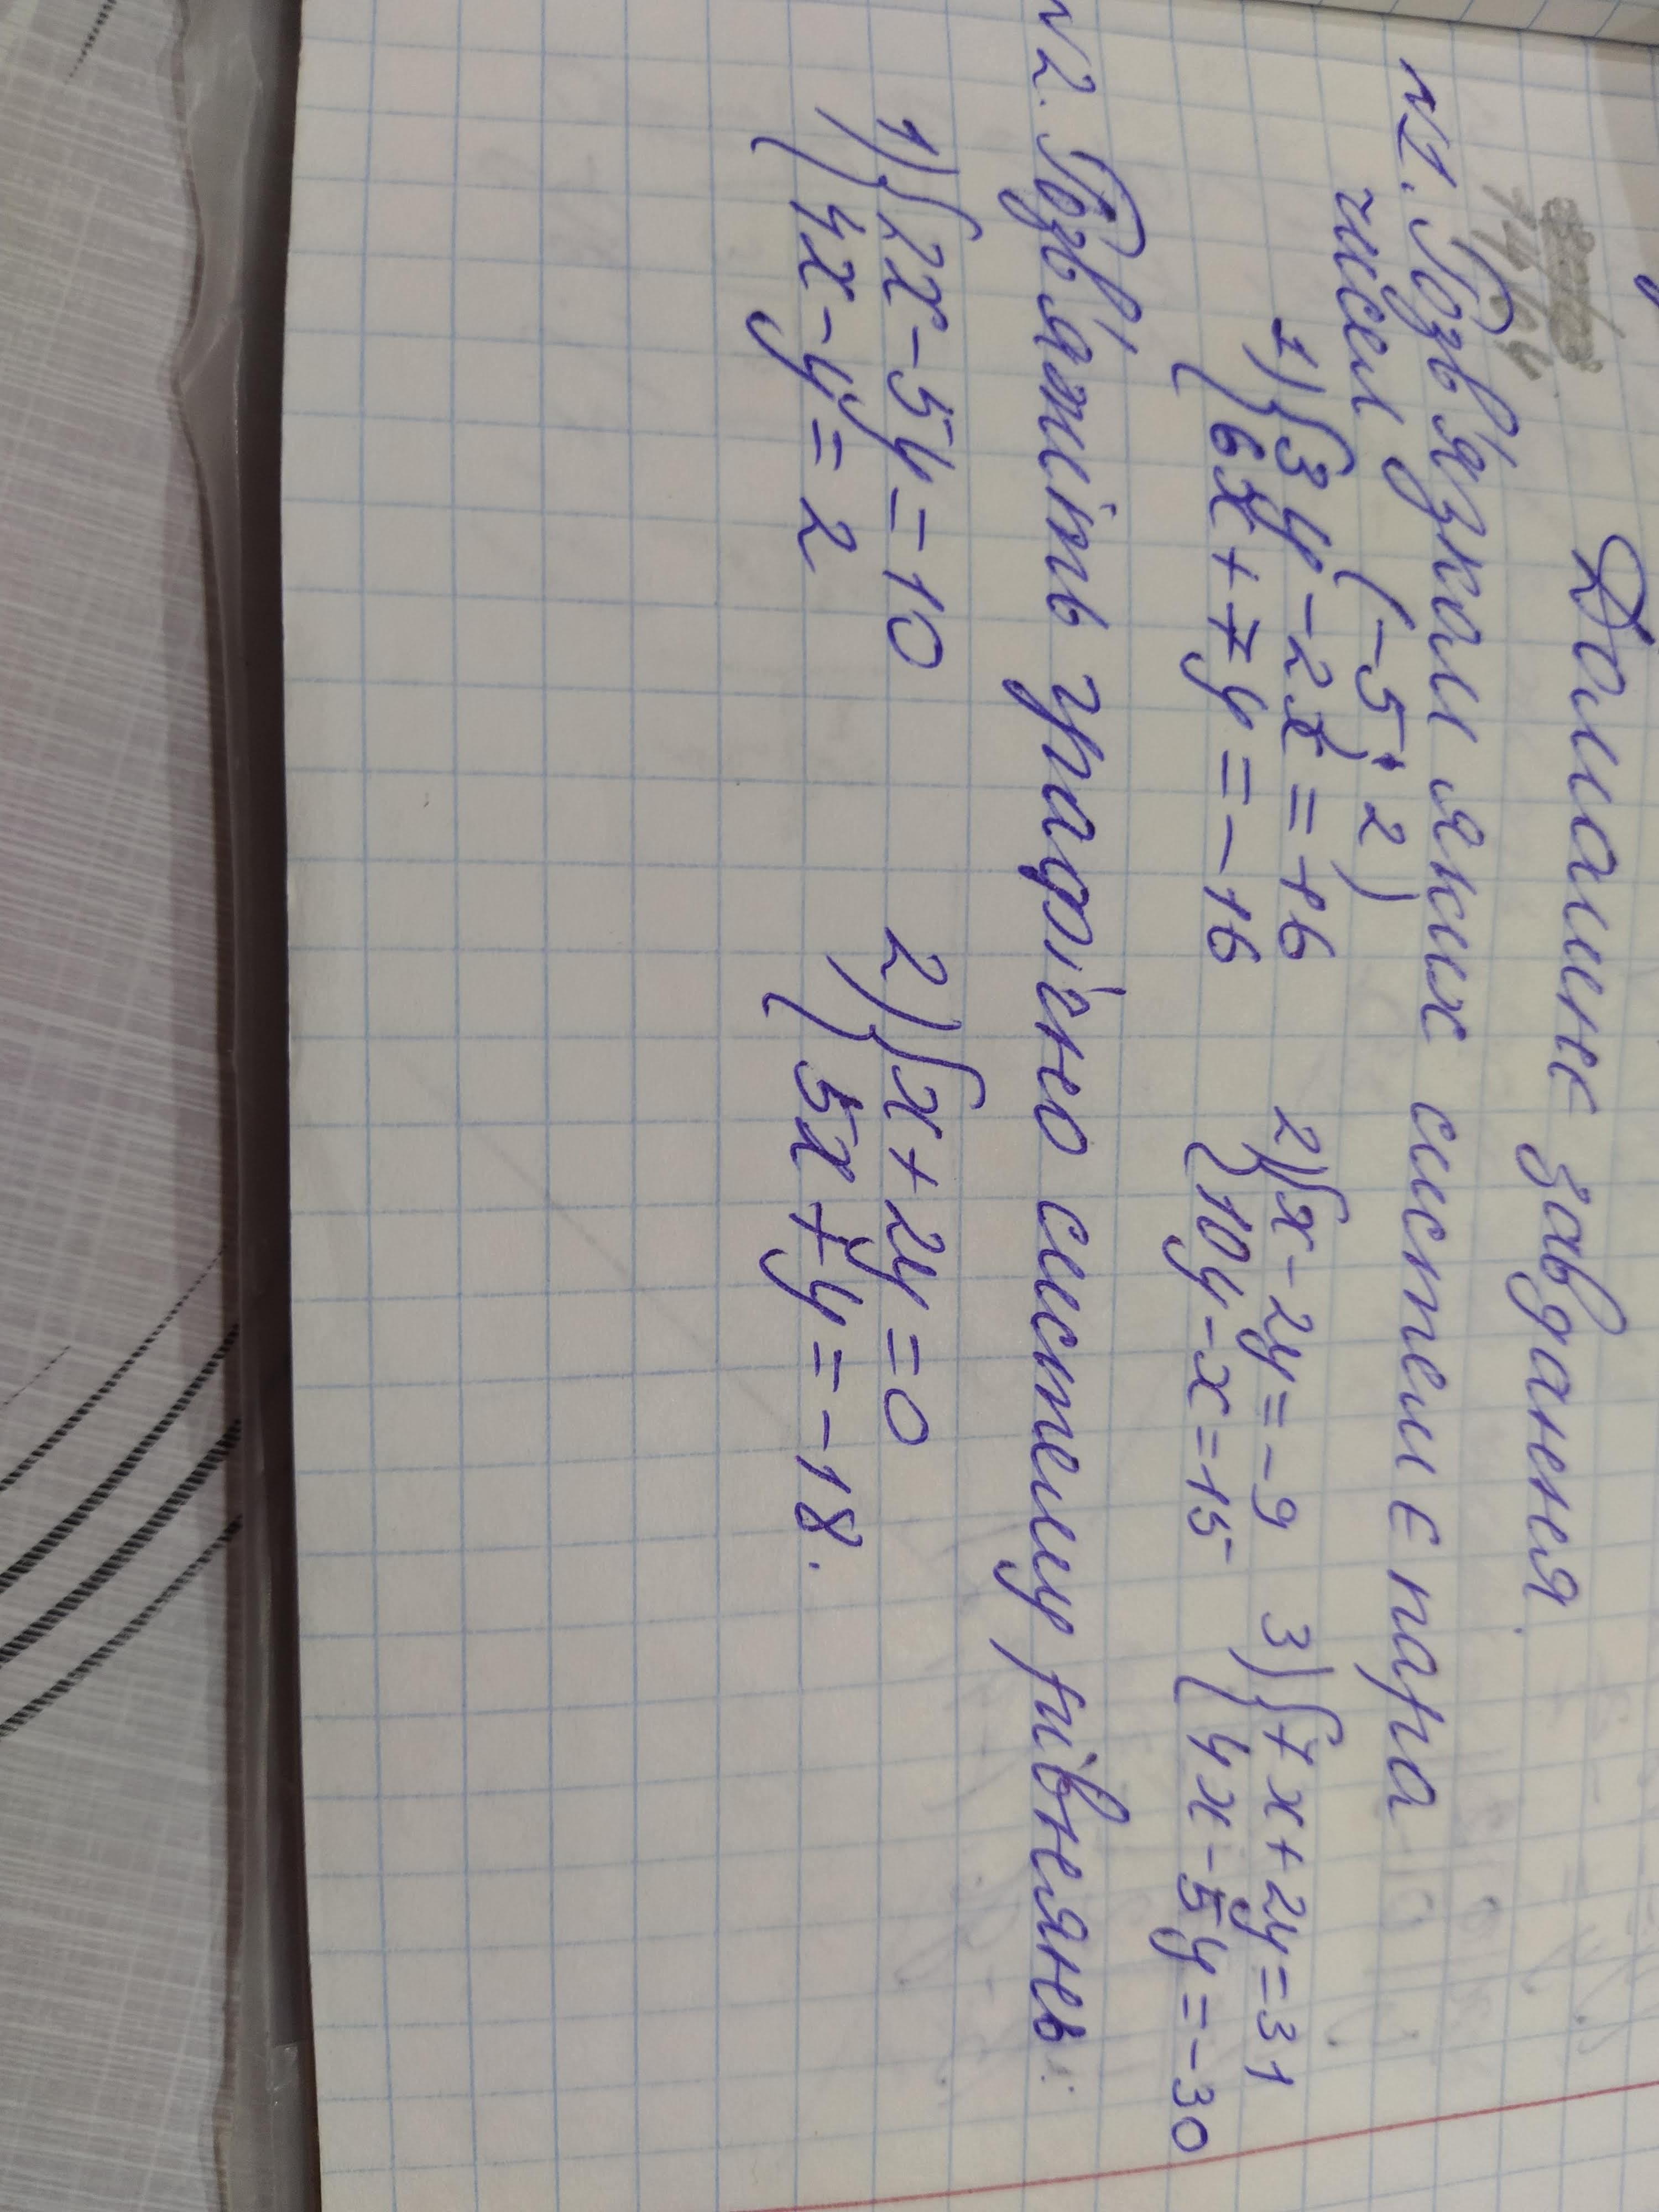 Домашнє завдання.
№1. Розв'язком яких систем є пара
чисел (-5; 2)
1) { 3y - 2x = 16 2) { x - 2y = -9 3) { 7x + 2y = 31
6x + 7y = -16 10y - x = 15 4x - 5y = -30
№2. Розв'яжіть графічно систему рівнянь:
1) { 2x - 5y = 10 2) { x + 2y = 0
4x - y = 2 5x + y = -18.